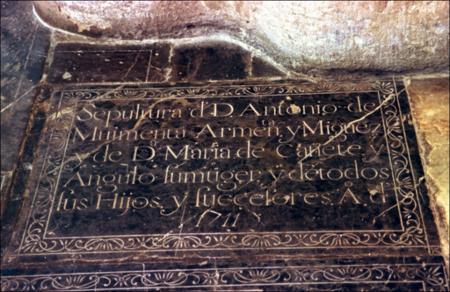 Sepultura d D. Antonio de
Muimenta Armen y Miguez
y de Dª Maria de Cañete y
Angulo su muger, y de todos
sus Hijos, y successores A. d
1711